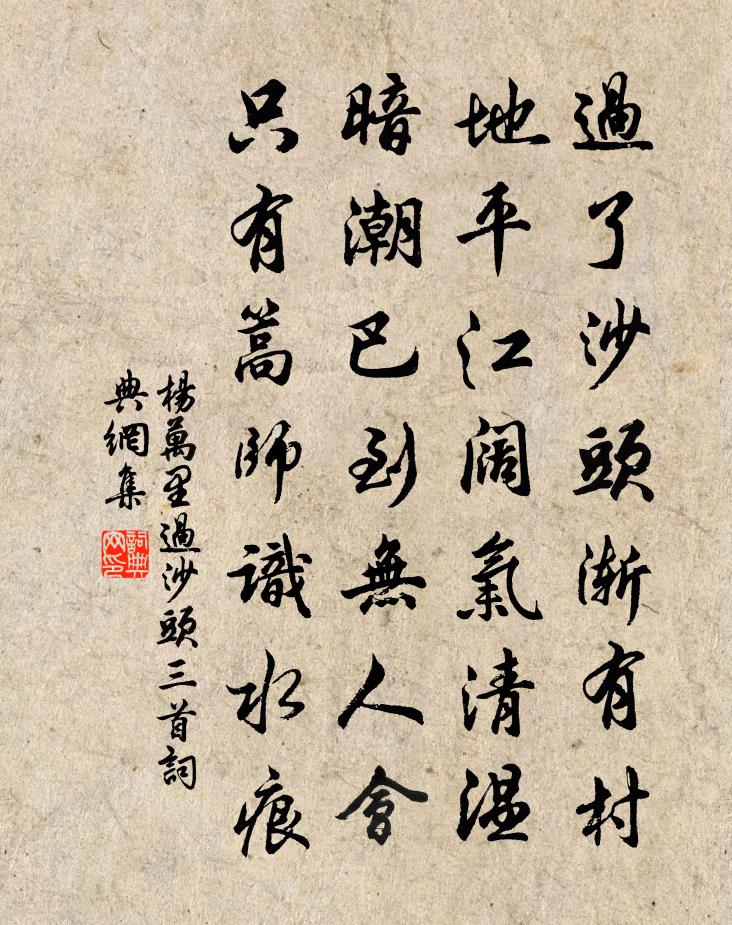 過了沙頭漸有村
地平江闊氣清温
暗潮已到無人會
只有篙師識水痕
楊萬里過沙頭三首詞
典網集
詞典
网印